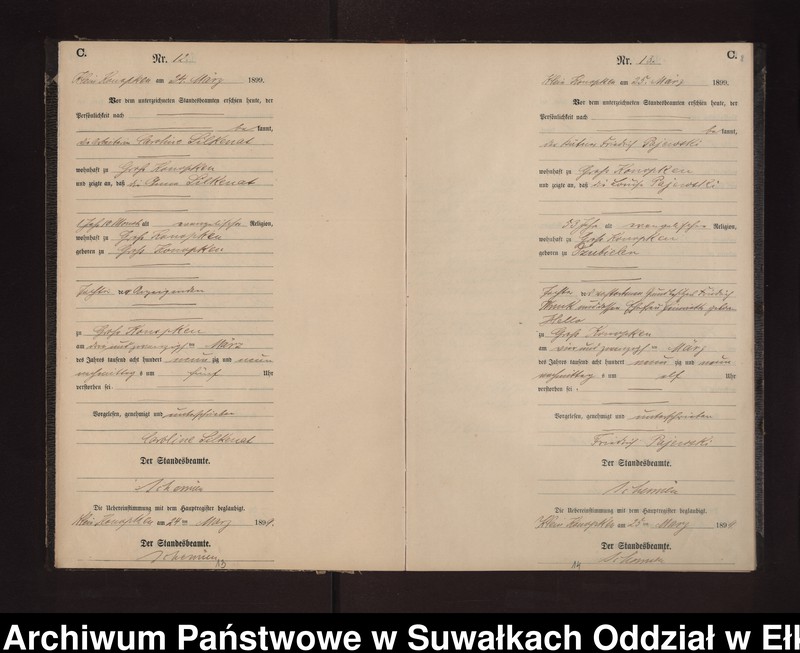 C.
Nr. 12.
Klein Konopken am 24. März 1899.
Vor dem unterzeichneten Standesbeamten erschien heute, der
Persönlichkeit nach
be kannt,
die Arbeiterin Caroline Silkenat
wohnhaft zu Groß Konopken
und zeigte an, daß die Silkenat
1 Jahr 10 Monat alt evangelischer Religion,
wohnhaft zu Groß Konopken
geboren zu Groß Konopken
Tochter der Anzeigenden
zu Groß Konopken
am drei und zwanzigsten März
des Jahres tausend acht hundert neun zig und neun
nachmittags um fünf Uhr
verstorben sei
Vorgelesen, genehmigt und unterschrieben
Caroline Silkenat
Der Standesbeamte.
Die Uebereinstimmung mit dem Hauptregister beglaubigt.
Klein Konopken am 24ten März 1899.
Der Standesbeamte.
13
C.
Nr.
Klein Konopken am 25. März 1899.
Vor dem unterzeichneten Standesbeamten erschien heute, der
Persönlichkeit nach
be kannt,
der Friedrich Pajewski
wohnhaft zu Groß Konopken
und zeigte an, daß die Louise Pajewski
53 Jahr alt evangelischer Religion,
wohnhaft zu Groß Konopken
geboren zu
Tochter des verstorbenen Friedrich
und dessen Ehefrau geborene
zu Groß Konopken
am vier und zwanzigsten März
des Jahres tausend acht hundert neun zig und neun
nachmittags um elf Uhr
verstorben sei
Vorgelesen, genehmigt und unterschrieben
Friedrich Pajewski
Der Standesbeamte.
Die Uebereinstimmung mit dem Hauptregister beglaubigt.
Klein Konopken am 25ten März 1899.
Der Standesbeamte.
14
Archiwum Państwowe w Suwałkach Oddział w Ełk